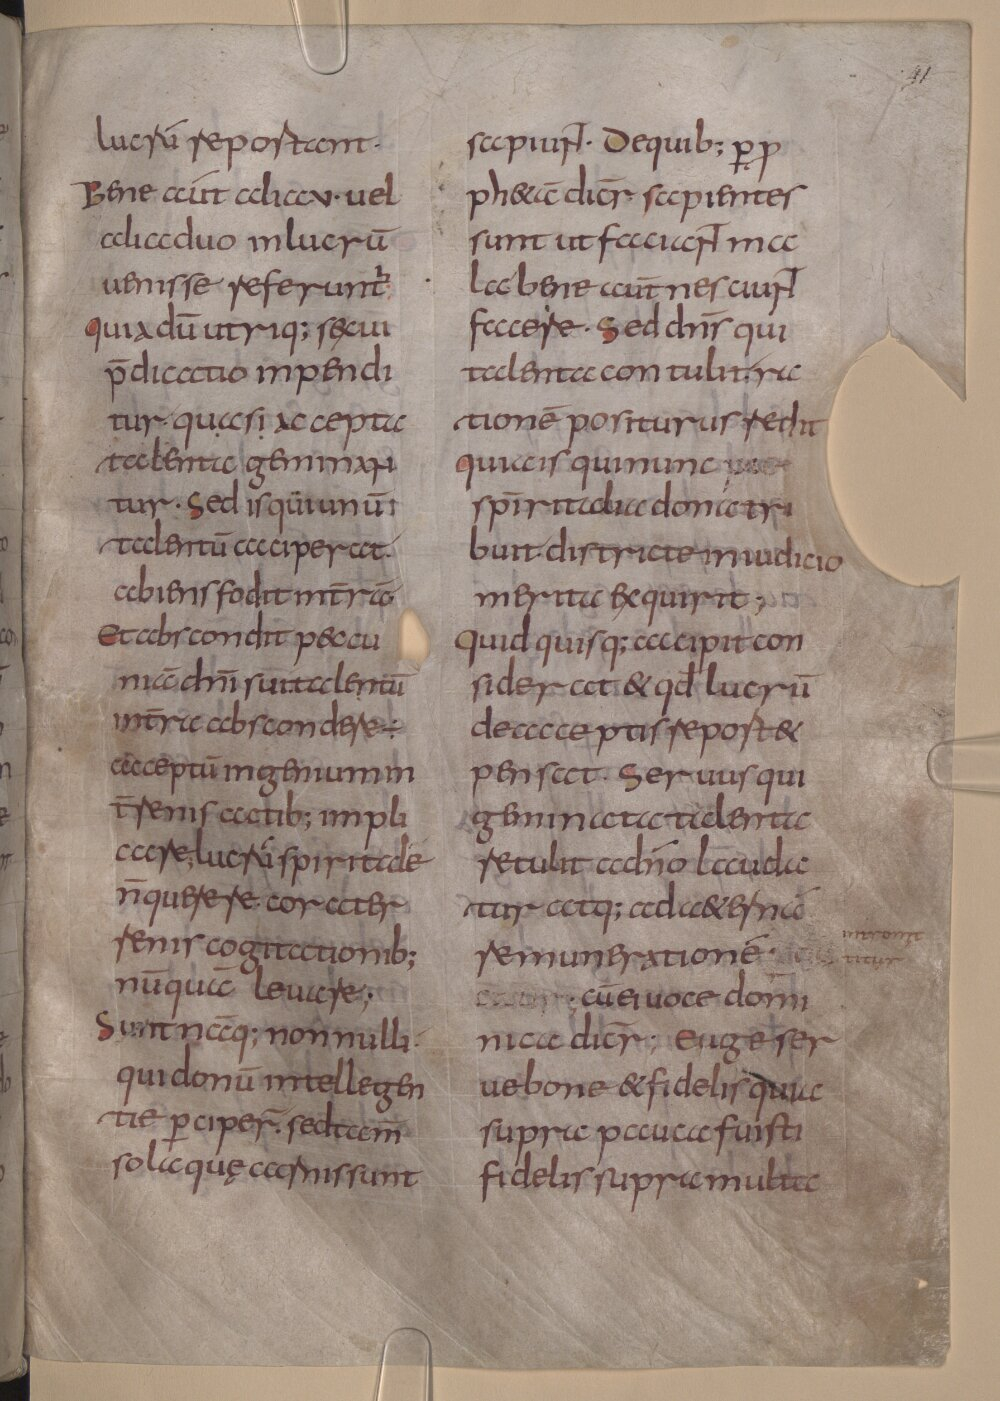 41
lucrū reportant.
Bene aūt alia v. uel
alia duo in lucrū
uenisse referunt̄
quia dū utriq; sexui
p̄dicatio inpendi
tur. quasi accepta
talenta geminan
tur. Sed is qui unū
talentū acciperat.
abiens fodit in t̄rā
Et abscondit pecu
niā dn̄i sui. talentū
in t̄ra abscondere:
acceptū ingenium in
t̄renis actib; impli
care, lucrū spiritale
n̄ querere. cor a ter
renis cogitationib;
nūquā leuare;
Sunt nāq; non nulli.
qui donū intellegen
tie p̱ciper̄. sed tam̄
sola quę carnis sunt
sapiun̄. De quib; p̱ p̱
ph&ā dicr̄. sapientes
sunt ut facian̄ ma
la bene aūt nesciun̄
facere. Sed dn̄s qui
talenta contulit. ra
tionē positurus redit
quia is qui nunc
spīritalia dona tri
buit. districte in iudicio
merita exquirit;
Quid quisq; accipit con
siderat & qd̄ lucrū
de acceptis report&
pensat. Seruus qui
geminata talenta
retulit a dn̄o lauda
tur atq; ad aeternā
remunerationē
intromit
titur
; cū ei uoce domi
nica dicr̄; Euge ser
ue bone & fidelis quia
supra pauca fuisti
fidelis supra multa